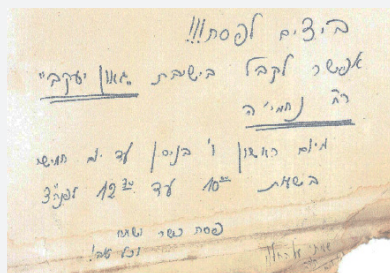 ביצים לפסח!!!
אפשר לקבל בישיבת "גאון יעקב"
רח' נחמי'ה
מיום ראשון ו' בניסן עד יום חמישי
בשעות 10⁰⁰ עד 12³⁰ לפנה"צ
פסח כשר ושמח
וכל טוב!